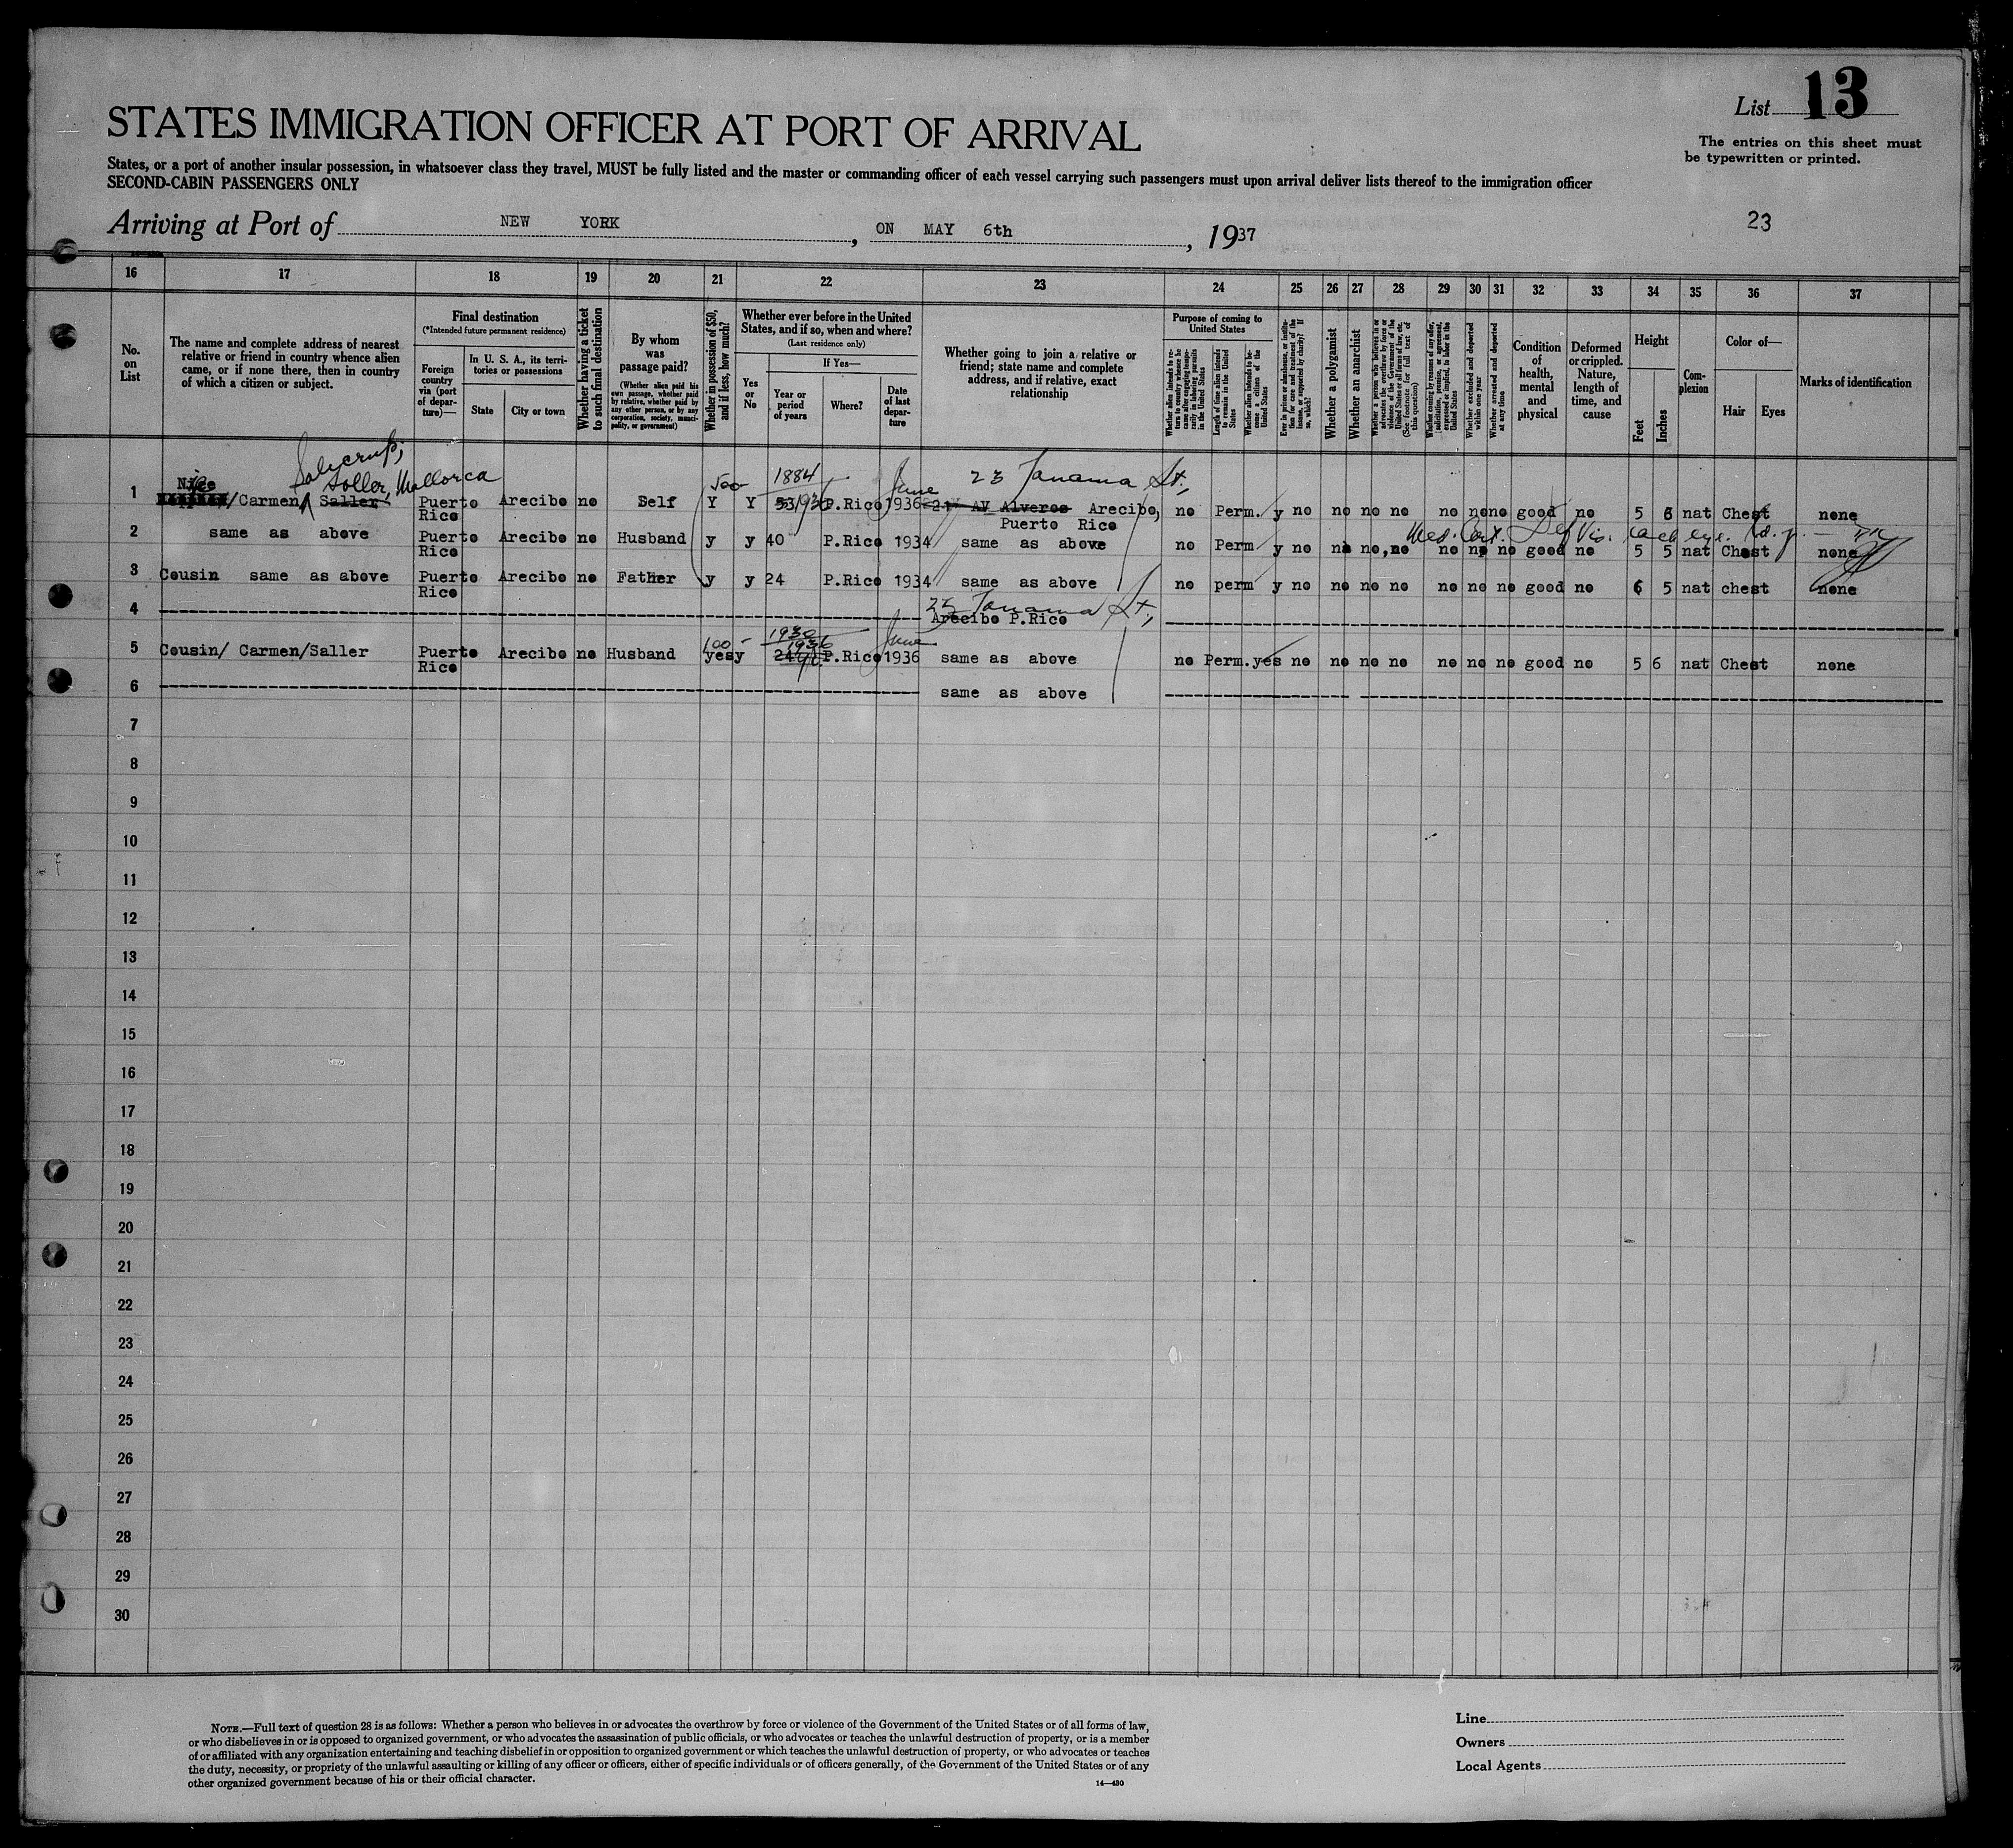 List 13
STATES IMMIGRATION OFFICER AT PORT OF ARRIVAL
The entries on this sheet must
be typewritten or printed.
States, or a port of another insular possession, in whatsoever class they travel, MUST be fully listed and the master or commanding officer of each vessel carrying such passengers must upon arrival deliver lists thereof to the immigration officer
SECOND-CABIN PASSENGERS ONLY
Arriving at Port of NEW YORK, ON MAY 6th, 1937
23
16 17 18 19 20 21 22 23 24 25 26 27 28 29 30 31 32 33 34 35 36 37
No. on List
The name and complete address of nearest relative or friend in country whence alien came, or if none there, then in country of which a citizen or subject.
Final destination
(*Intended future permanent residence)
Foreign country via (port of departure)—
In U. S. A., its territories or possessions
State
City or town
Whether having a ticket to such final destination
By whom was passage paid?
(Whether alien paid his own passage, whether paid by relative, whether paid by any other person, or by any corporation, society, municipality, or government)
Whether in possession of $50, and if less, how much?
Whether ever before in the United States, and if so, when and where?
(Last residence only)
Yes or No
If Yes—
Year or period of years
Where?
Date of last departure
Whether going to join a relative or friend; state name and complete address, and if relative, exact relationship
Purpose of coming to United States
Whether alien intends to return to country whence he came after engaging temporarily in laboring pursuits in the United States
Length of time alien intends to remain in the United States
Whether alien intends to become a citizen of the United States
Ever in prison or almshouse, or institution for care and treatment of the insane, or supported by charity? If so, which?
Whether a polygamist
Whether an anarchist
Whether a person who believes in or advocates the overthrow by force or violence of the Government of the United States or all forms of law, etc. (See footnote for full text of this question)
Whether coming by reasons of any offer, solicitation, promise, or agreement, expressed or implied, to labor in the United States
Whether excluded and deported within one year
Whether arrested and deported at any time
Condition of health, mental and physical
Deformed or crippled. Nature, length of time, and cause
Height
Feet
Inches
Complexion
Color of—
Hair
Eyes
Marks of identification
Soller, Mallorca 500 1884 June 23 Tanama St.,
1 Niece /Carmen Saller Puerto Rico Arecibo no Self Y Y P.Rico 1936 21 AV Alveros Arecibo, Puerto Rico no Perm. y no no no no no no no good no 5 6 nat Chest none
Med. Cert. Def Vis. each eye.
2 same as above Puerto Rico Arecibo no Husband y y 40 P.Rico 1934 same as above no Perm y no no no, no no no no good no 5 5 nat Chest none
3 Cousin same as above Puerto Rico Arecibo no Father y y 24 P.Rico 1934 same as above no perm y no no no no no no no good no 6 5 nat chest none
4 Tanama St.,
Arecibo P.Rico
100 1936 June
5 Cousin/ Carmen/Saller Puerto Rico Arecibo no Husband yes y P.Rico 1936 same as above no Perm. yes no no no no no no no good no 5 6 nat Chest none
6 same as above
7
8
9
10
11
12
13
14
15
16
17
18
19
20
21
22
23
24
25
26
27
28
29
30
NOTE.—Full text of question 28 is as follows: Whether a person who believes in or advocates the overthrow by force or violence of the Government of the United States or of all forms of law,
or who disbelieves in or is opposed to organized government, or who advocates the assassination of public officials, or who advocates or teaches the unlawful destruction of property, or is a member
of or affiliated with any organization entertaining and teaching disbelief in or opposition to organized government or which teaches the unlawful destruction of property, or who advocates or teaches
the duty, necessity, or propriety of the unlawful assaulting or killing of any officer or officers, either of specific individuals or of officers generally, of the Government of the United States or of any
other organized government because of his or their official character.
14—430
Line
Owners
Local Agents